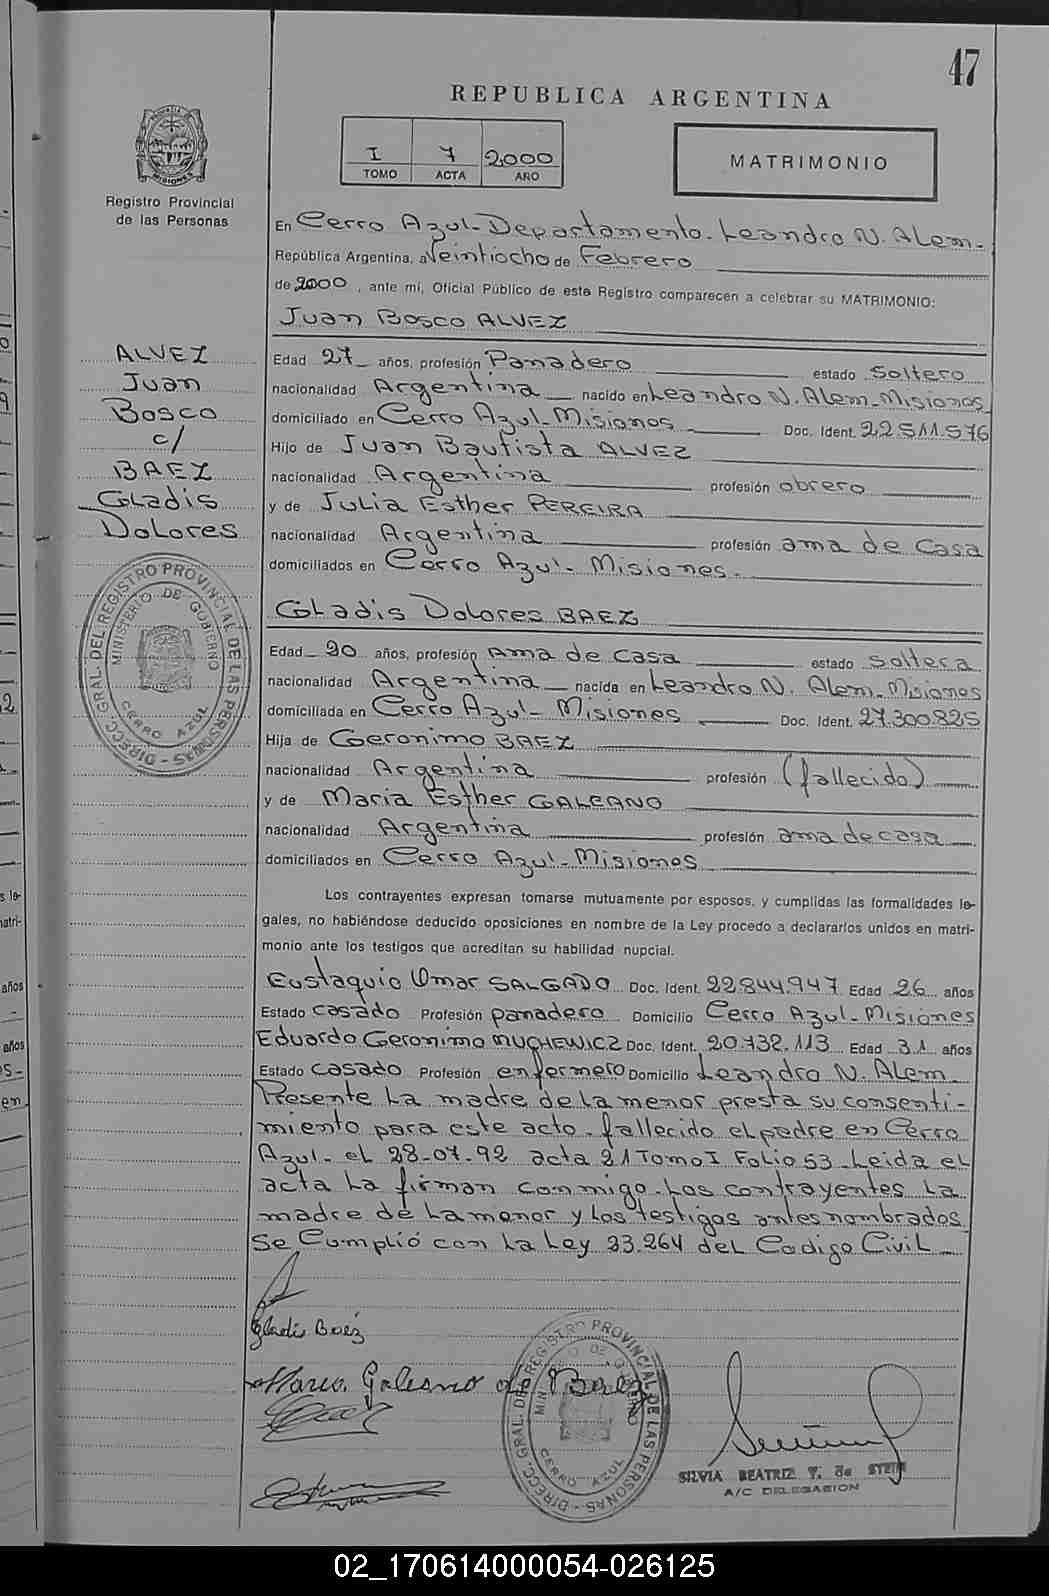 47
REPUBLICA ARGENTINA
I 7 2000
TOMO ACTA AÑO
MATRIMONIO
Registro Provincial
de las Personas
En Cerro Azul-Departamento. Leandro N. Alem-
República Argentina, a Veintiocho de Febrero
de 2000, ante mí, Oficial Público de este Registro comparecen a celebrar su MATRIMONIO:
Juan Bosco ALVEZ
ALVEZ
Juan
Bosco
c/
BAEZ
Gladis
Dolores
Edad 27 años, profesión Panadero estado soltero
nacionalidad Argentina nacido en Leandro N. Alem-Misiones
domiciliado en Cerro Azul-Misiones Doc. Ident. 22.511.576
Hijo de Juan Bautista ALVEZ
nacionalidad Argentina profesión obrero
y de Julia Esther PEREIRA
nacionalidad Argentina profesión ama de casa
domiciliados en Cerro Azul- Misiones.
Gladis Dolores BAEZ
Edad 20 años, profesión Ama de casa estado soltera
nacionalidad Argentina nacida en Leandro N. Alem-Misiones
domiciliada en Cerro Azul- Misiones Doc. Ident. 27.300.825
Hija de Geronimo BAEZ
nacionalidad Argentina profesión (fallecido)
y de Maria Esther GALEANO
nacionalidad Argentina profesión ama de casa
domiciliados en Cerro Azul-Misiones
Los contrayentes expresan tomarse mutuamente por esposos, y cumplidas las formalidades le-
gales, no habiéndose deducido oposiciones en nombre de la Ley procedo a declararlos unidos en matri-
monio ante los testigos que acreditan su habilidad nupcial.
Eustaquio Omar SALGADO Doc. Ident. 22.844.947 Edad 26 años
Estado casado Profesión panadero Domicilio Cerro Azul-Misiones
Eduardo Geronimo MUCHEWICZ Doc. Ident. 20.732.113 Edad 31 años
Estado casado Profesión enfermero Domicilio Leandro N. Alem.
Presente la madre de la menor presta su consenti-
miento para este acto. fallecido el padre en Cerro
Azul- el 28-07-92 acta 21 Tomo I Folio 53-Leida el
acta la firman conmigo. Los contrayentes la
madre de la menor y los testigos antes nombrados
Se Cumplió con la Ley 23.264 del Codigo Civil
DIRECC. GRAL. DEL REGISTRO PROVINCIAL DE LAS PERSONAS
MINISTERIO DE GOBIERNO
CERRO AZUL
Gladis Baéz
Maria Galeano de Baez
DIRECC. GRAL. DEL REGISTRO PROVINCIAL DE LAS PERSONAS
CERRO AZUL
SILVIA BEATRIZ T. de STEIN
A/C DELEGACION
02_170614000054-026125